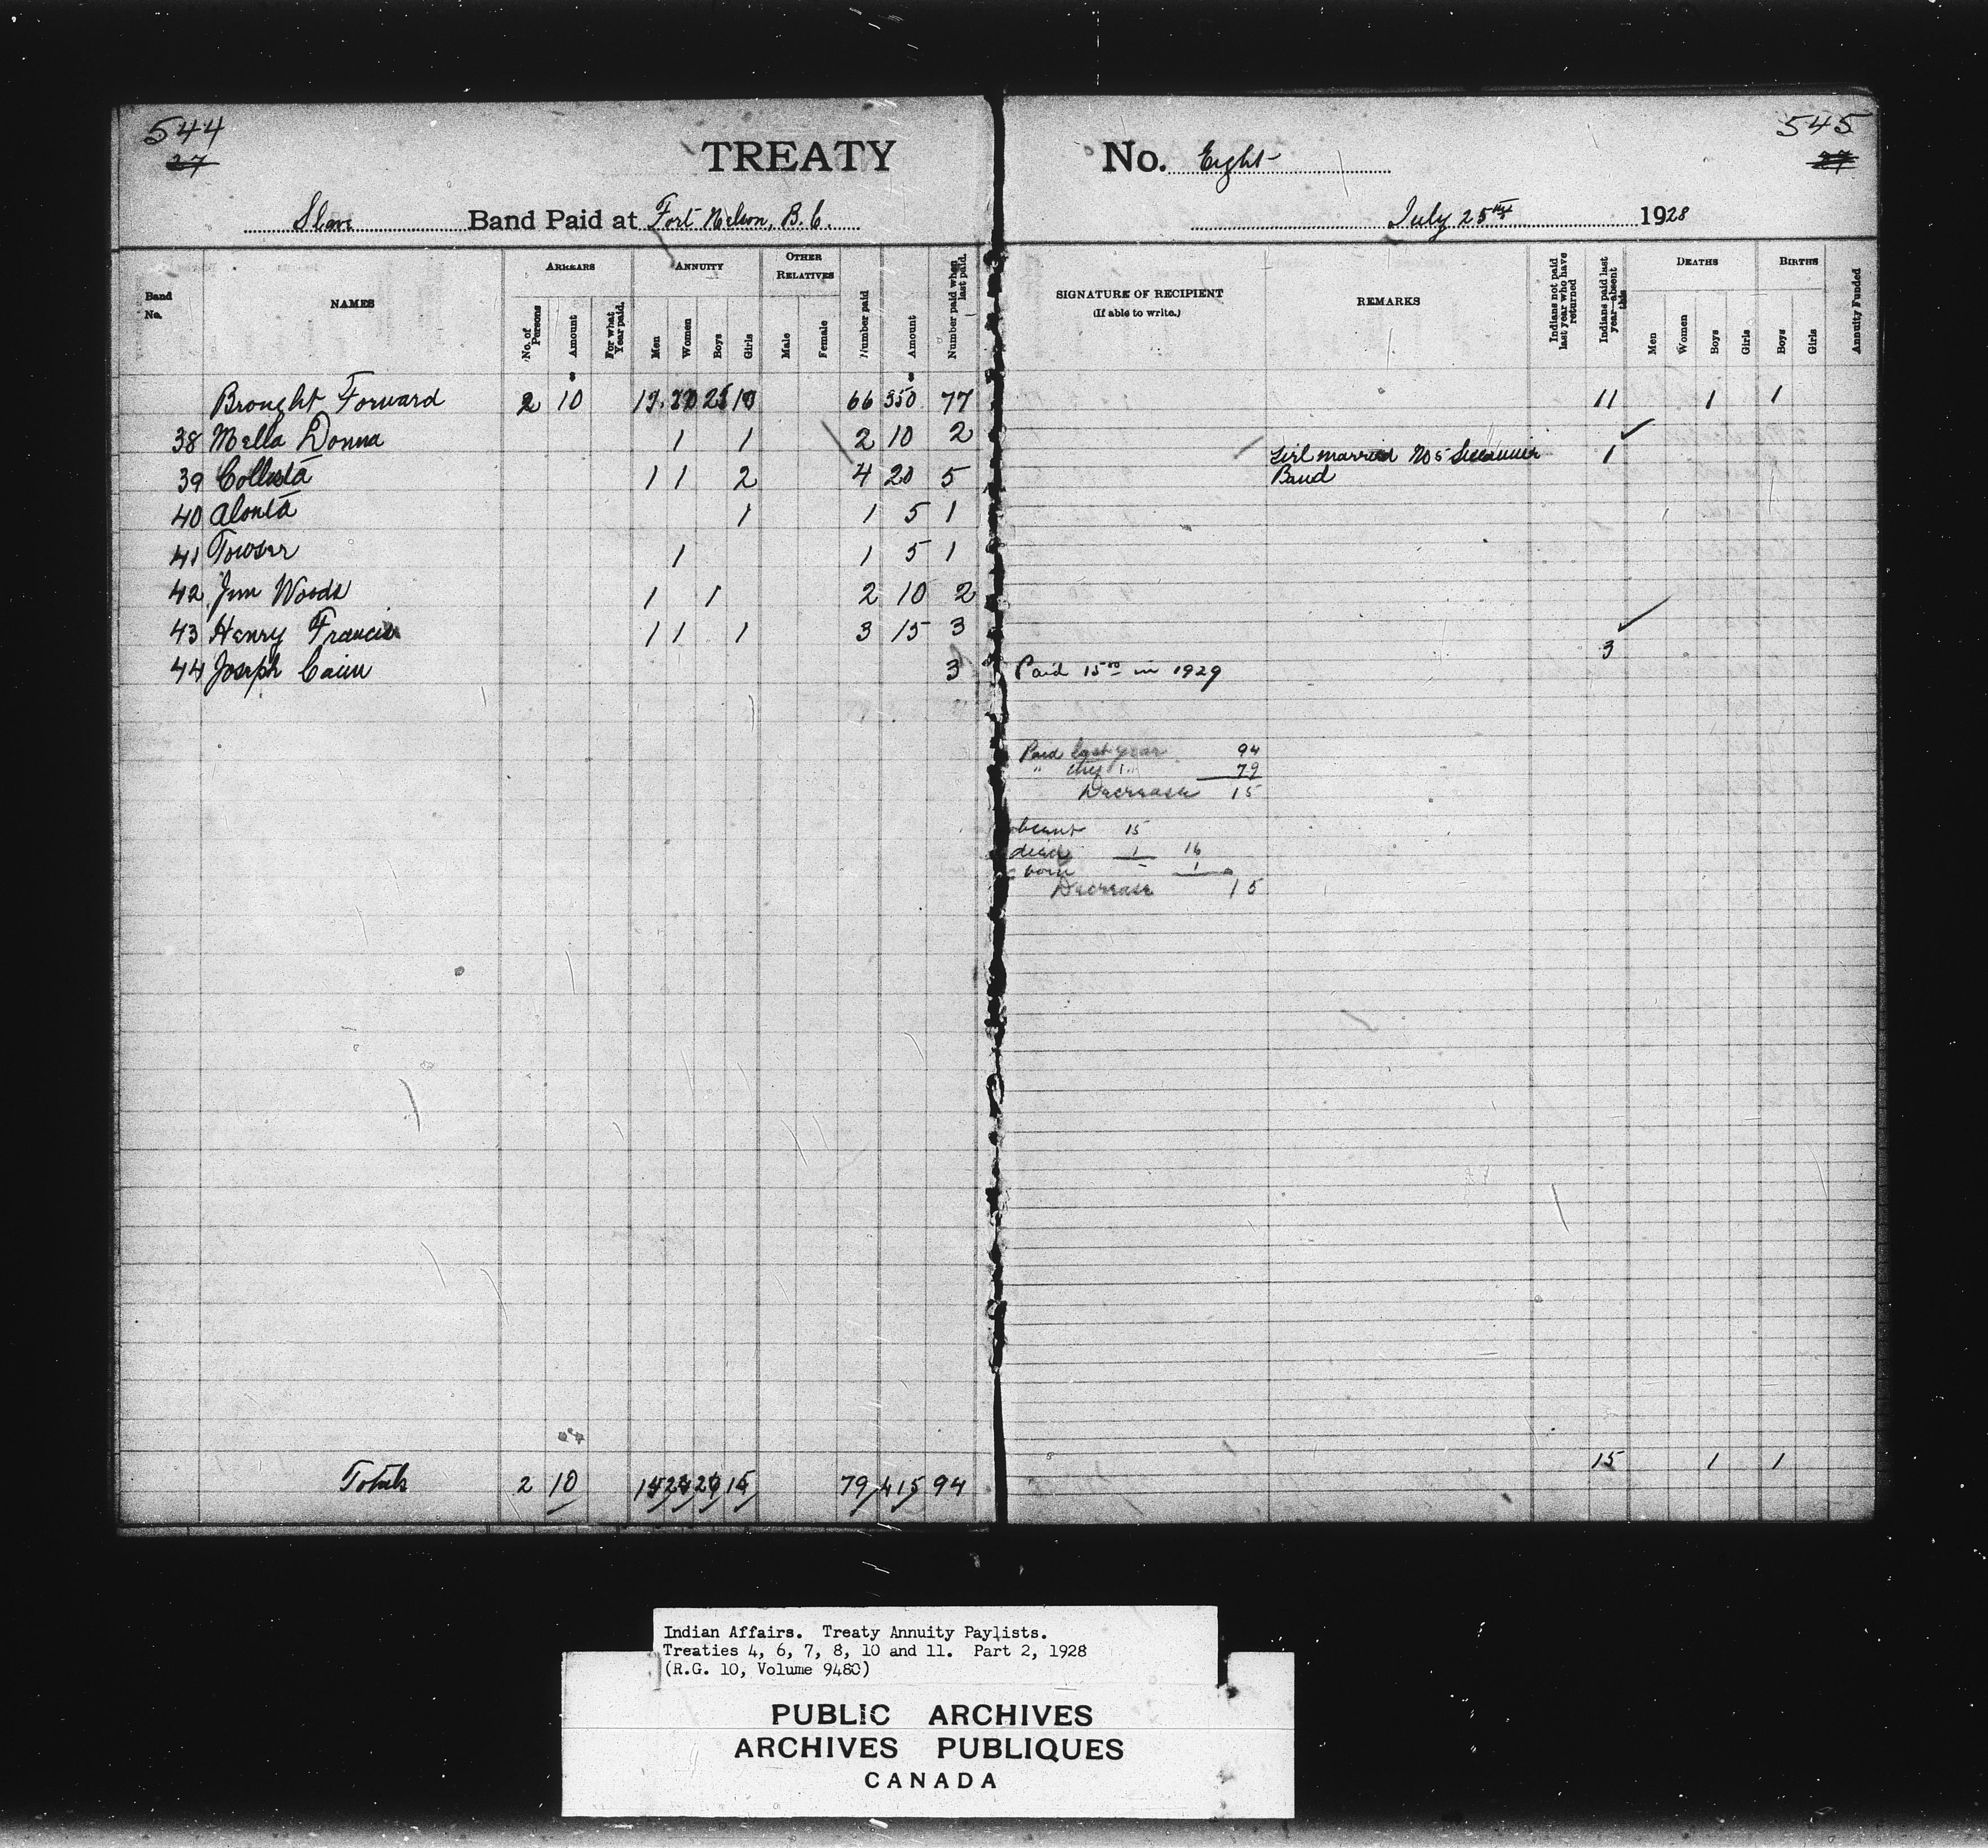 544 545
27 27
TREATY No. Eight
Slave Band Paid at Fort Nelson, B.C. July 25th 1928
Band No. NAMES ARREARS No. of Persons Amount For what Year paid. ANNUITY Men Women Boys Girls OTHER RELATIVES Male Female Number paid Amount Number paid when last paid. SIGNATURE OF RECIPIENT (If able to write.) REMARKS Indians not paid last year who have returned Indians paid last year—absent this DEATHS Men Women Boys Girls BIRTHS Boys Girls Annuity Funded
Brought Forward 2 10 66 350 77 11 1 1
38 Mella Donna 1 1 2 10 2
39 Collista 1 1 2 4 20 5 Girl married No 5 Siccannie 1
Band
40 Alonta 1 1 5 1
41 Towser 1 1 5 1
42 Jim Woods 1 1 2 10 2
43 Henry Francis 1 1 1 3 15 3
44 Joseph Cain 3 Paid 15.00 in 1929 3
Paid last year 94
" this " 79
Decrease 15
absent 15
dead 1 16
born 1
Decrease 15
Totals 2 10 79 415 94 15 1 1
Indian Affairs. Treaty Annuity Paylists.
Treaties 4, 6, 7, 8, 10 and 11. Part 2, 1928
(R.G. 10, Volume 9480)
PUBLIC ARCHIVES
ARCHIVES PUBLIQUES
CANADA